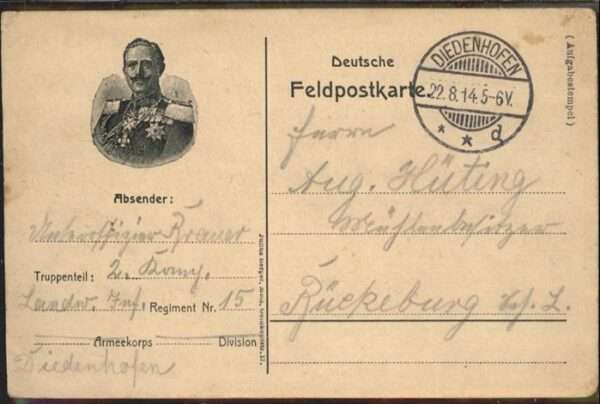 Absender:
Unteroffizier Kramer
Truppenteil: 2. Komp.
Landw. Inf. Regiment Nr. 15
Armeekorps Division
Diedenhofen
Deutsche
Feldpostkarte.
DIEDENHOFEN
22.8.14.5-6V.
* * d
(Aufgabestempel)
Herrn
Aug. Hüting
Mühlenbesitzer
Bückeburg